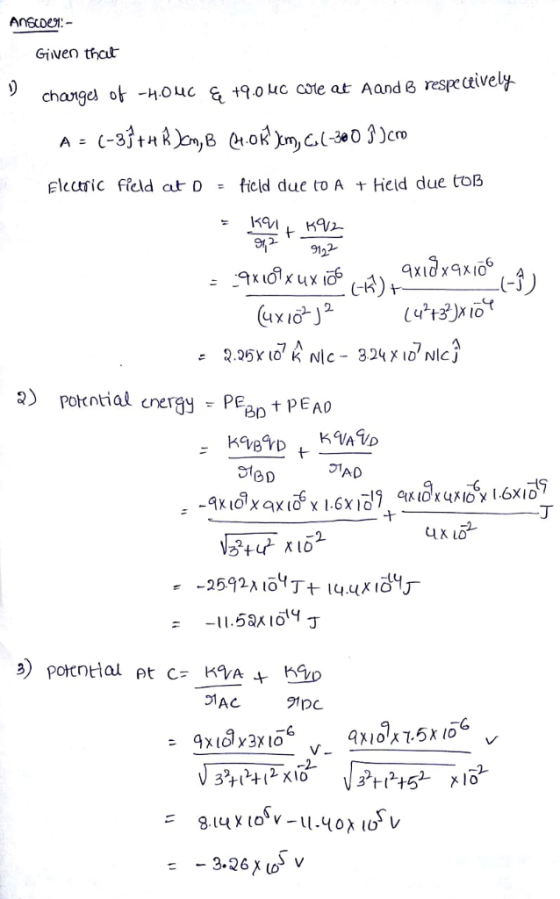 Answer:-
Given that
1) charges of -4.0μC & +9.0μC are at A and B respectively
A = (-3ĵ+4k̂)cm, B (4.0k̂)cm, C(-3.0 ĵ)cm
Electric field at D = field due to A + field due to B
= Kq1/r1² + Kq2/r2²
= -9×10⁹×4×10⁻⁶/(4×10⁻²)² (-k̂) + 9×10⁹×9×10⁻⁶/(4²+3²)×10⁻⁴ (-ĵ)
= 2.25×10⁷ k̂ N/C - 3.24×10⁷ N/C ĵ
2) potential energy = PE_BD + PE_AD
= Kq_Bq_D/r_BD + Kq_Aq_D/r_AD
= -9×10⁹×9×10⁻⁶×1.6×10⁻¹⁹/√3²+4² ×10⁻² + 9×10⁹×4×10⁻⁶×1.6×10⁻¹⁹/4×10⁻² J
= -25.92×10⁻¹⁴J + 14.4×10⁻¹⁴J
= -11.52×10⁻¹⁴ J
3) potential At C = Kq_A/r_AC + Kq_D/r_DC
= 9×10⁹×3×10⁻⁶/√3²+1²+1² ×10⁻² V - 9×10⁹×7.5×10⁻⁶/√3²+1²+5² ×10⁻² V
= 8.14×10⁵V - 11.40×10⁵V
= -3.26×10⁵ V